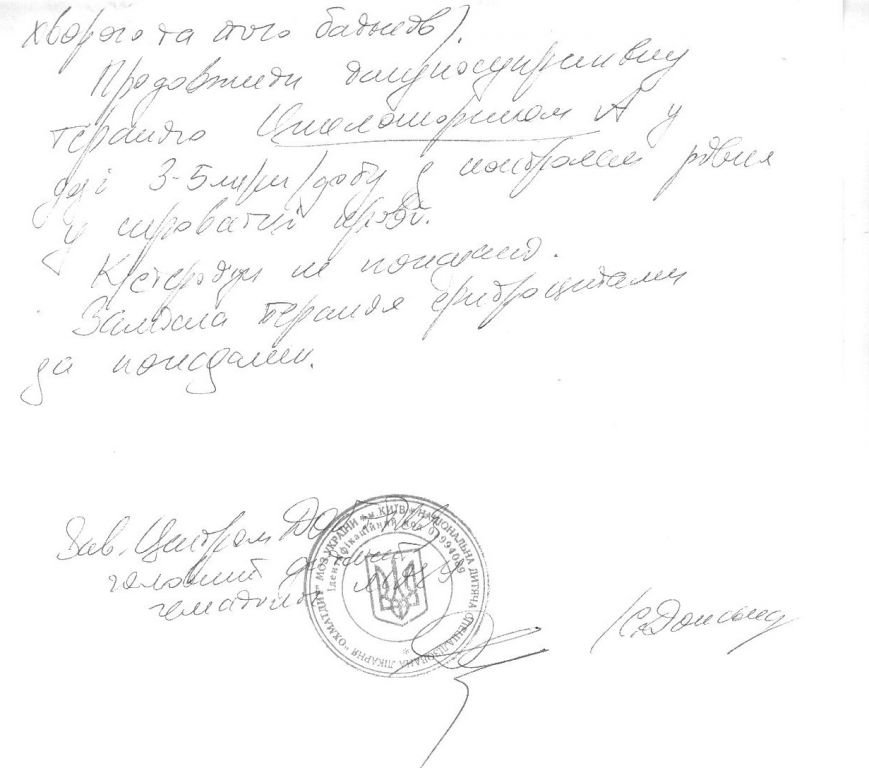 хворого та його батьків).
Продовжити імуносупресивну
терапію Циклоспорином А у
дозі 3-5 мг/кг/добу з контролем рівня
у сироватці крові.
К/стероїди не показано.
Замісна терапія еритроцитами
за показами.
Зав. Центром
головний дитячий
гематолог МОЗ
МОЗ УКРАЇНИ * м. КИЇВ * НАЦІОНАЛЬНА ДИТЯЧА СПЕЦІАЛІЗОВАНА ЛІКАРНЯ "ОХМАТДИТ"
Ідентифікаційний код
/С. Донська